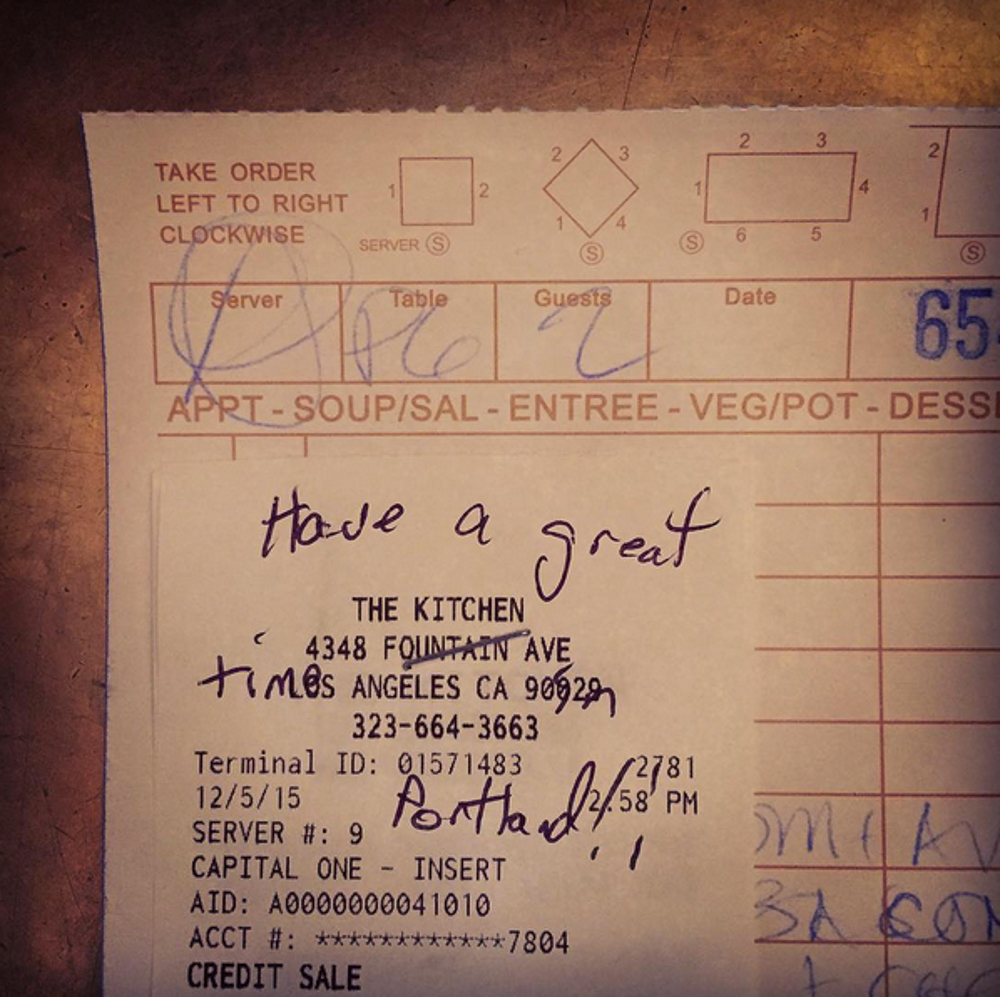 TAKE ORDER
LEFT TO RIGHT
CLOCKWISE
1 2
SERVER S
2 3
1 4
S
2 3
1 4
S 6 5
2
1
S
Server Table Guests Date
P6 2 65
APPT - SOUP/SAL - ENTREE - VEG/POT - DESS
Have a great
THE KITCHEN
4348 FOUNTAIN AVE
time LOS ANGELES CA 90029 in
323-664-3663
Terminal ID: 01571483 2781
12/5/15 2:58 PM
Portland!!
SERVER #: 9
CAPITAL ONE - INSERT
AID: A0000000041010
ACCT #: ************7804
CREDIT SALE